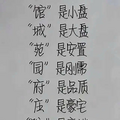 "馆"是小盘
"城"是大盘
"苑"是安置
"园"是刚需
"府"是品质
"庄"是豪宅